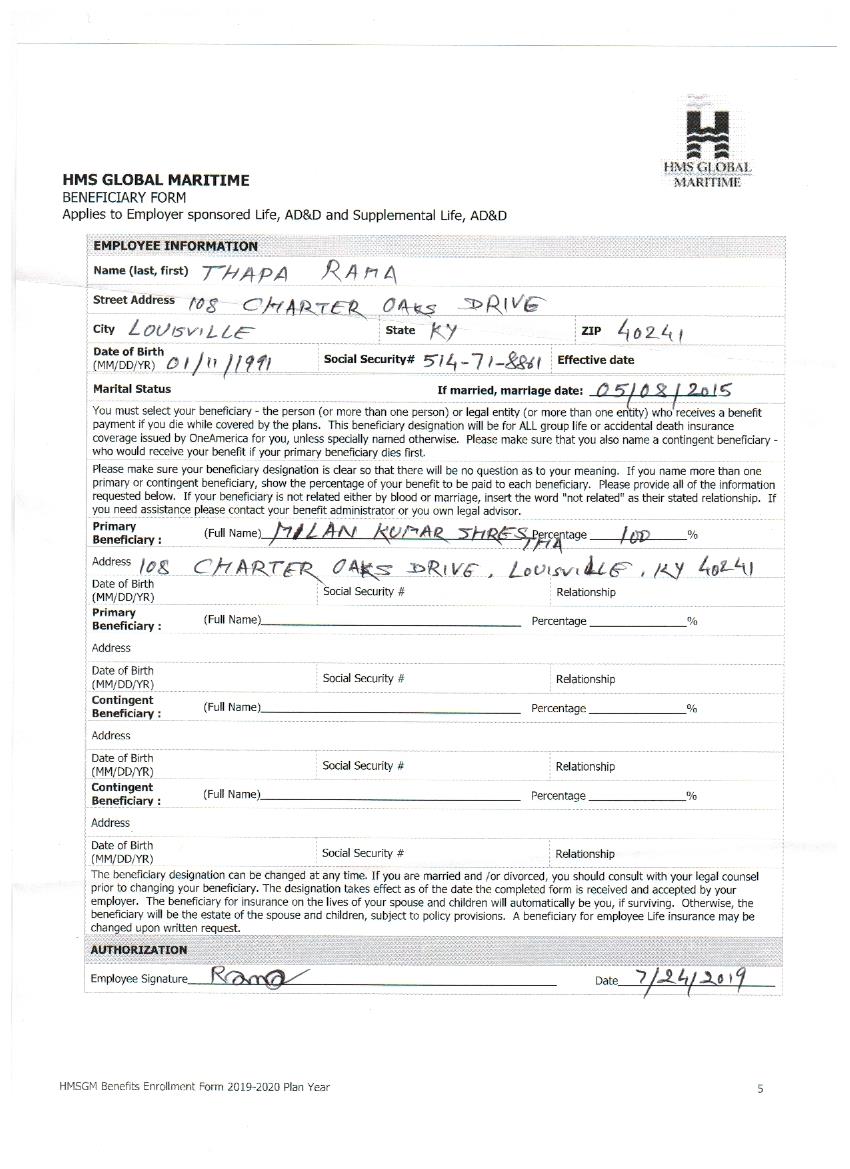 HMS GLOBAL
MARITIME
HMS GLOBAL MARITIME
BENEFICIARY FORM
Applies to Employer sponsored Life, AD&D and Supplemental Life, AD&D
EMPLOYEE INFORMATION
Name (last, first) THAPA RAMA
Street Address 108 CHARTER OAKS DRIVE
City LOUISVILLE State KY ZIP 40241
Date of Birth
(MM/DD/YR) 01/11/1991 Social Security# 514-71-8861 Effective date
Marital Status If married, marriage date: 05/08/2015
You must select your beneficiary - the person (or more than one person) or legal entity (or more than one entity) who receives a benefit
payment if you die while covered by the plans. This beneficiary designation will be for ALL group life or accidental death insurance
coverage issued by OneAmerica for you, unless specially named otherwise. Please make sure that you also name a contingent beneficiary -
who would receive your benefit if your primary beneficiary dies first.
Please make sure your beneficiary designation is clear so that there will be no question as to your meaning. If you name more than one
primary or contingent beneficiary, show the percentage of your benefit to be paid to each beneficiary. Please provide all of the information
requested below. If your beneficiary is not related either by blood or marriage, insert the word "not related" as their stated relationship. If
you need assistance please contact your benefit administrator or you own legal advisor.
Primary
Beneficiary : (Full Name) MILAN KUMAR SHRESTHA Percentage 100 %
Address 108 CHARTER OAKS DRIVE, LOUISVILLE, KY 40241
Date of Birth
(MM/DD/YR) Social Security # Relationship
Primary
Beneficiary : (Full Name) Percentage %
Address
Date of Birth
(MM/DD/YR) Social Security # Relationship
Contingent
Beneficiary : (Full Name) Percentage %
Address
Date of Birth
(MM/DD/YR) Social Security # Relationship
Contingent
Beneficiary : (Full Name) Percentage %
Address
Date of Birth
(MM/DD/YR) Social Security # Relationship
The beneficiary designation can be changed at any time. If you are married and /or divorced, you should consult with your legal counsel
prior to changing your beneficiary. The designation takes effect as of the date the completed form is received and accepted by your
employer. The beneficiary for insurance on the lives of your spouse and children will automatically be you, if surviving. Otherwise, the
beneficiary will be the estate of the spouse and children, subject to policy provisions. A beneficiary for employee Life insurance may be
changed upon written request.
AUTHORIZATION
Employee Signature Rama Date 7/24/2019
HMSGM Benefits Enrollment Form 2019-2020 Plan Year 5